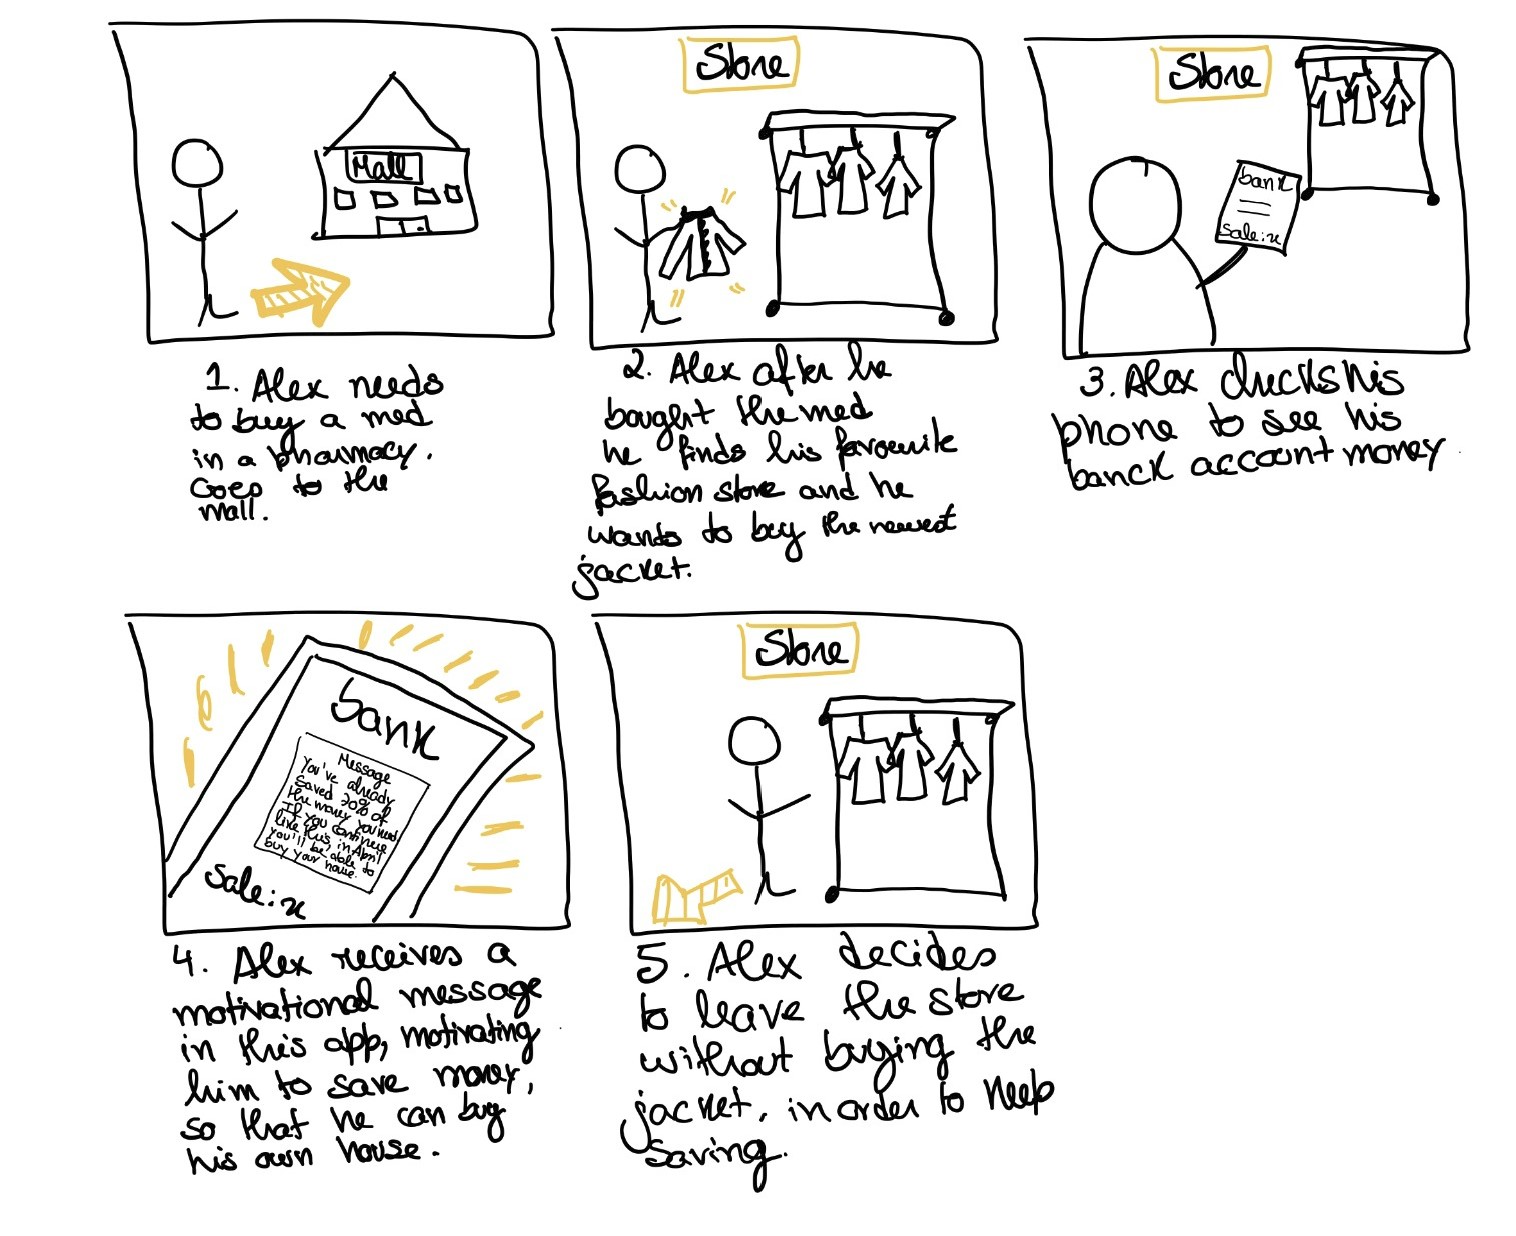 Mall
1. Alex needs
to buy a med
in a pharmacy.
Goes to the
mall.
Store
2. Alex after he
bought the med
he finds his favourite
fashion store and he
wants to buy the newest
jacket.
Store
bank
Sale: x
3. Alex checks his
phone to see his
banck account money
bank
Message
You've already
saved 70% of
the money you need
If you continue
like this, in April
you'll be able to
buy your house.
Sale: x
4. Alex receives a
motivational message
in this app, motivating
him to save money,
so that he can buy
his own house.
Store
5. Alex decides
to leave the store
without buying the
jacket, in order to keep
saving.